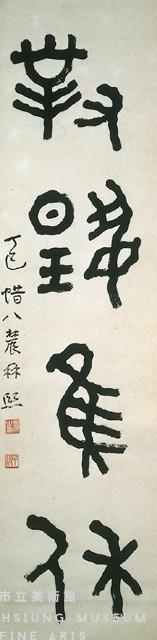 對揚休
丁巳惜八農林熙
市立美術館
HSIUNG MUSEUM
FINE ARTS